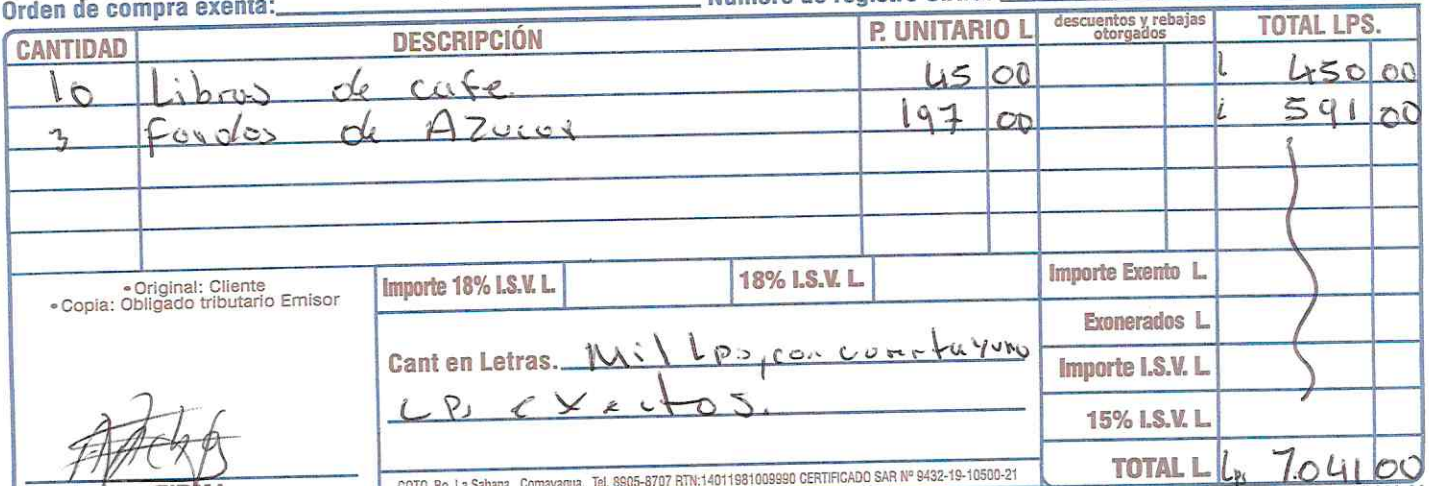 Orden de compra exenta:
CANTIDAD DESCRIPCIÓN P. UNITARIO L descuentos y rebajas otorgados TOTAL LPS.
10 Libras de cafe 45 00 L 450 00
3 Fardos de AZucar 197 00 L 591 00
•Original: Cliente
•Copia: Obligado tributario Emisor
Importe 18% I.S.V. L. 18% I.S.V. L.
Importe Exento L.
Exonerados L.
Cant en Letras. Mil Lps, con cuarentayuno
Importe I.S.V. L.
LPs exactos.
15% I.S.V. L.
TOTAL L. Lps 1.041 00
Bo. La Sabana, Comayagua, Tel. 8905-8707 RTN:14011981009990 CERTIFICADO SAR Nº 9432-19-10500-21